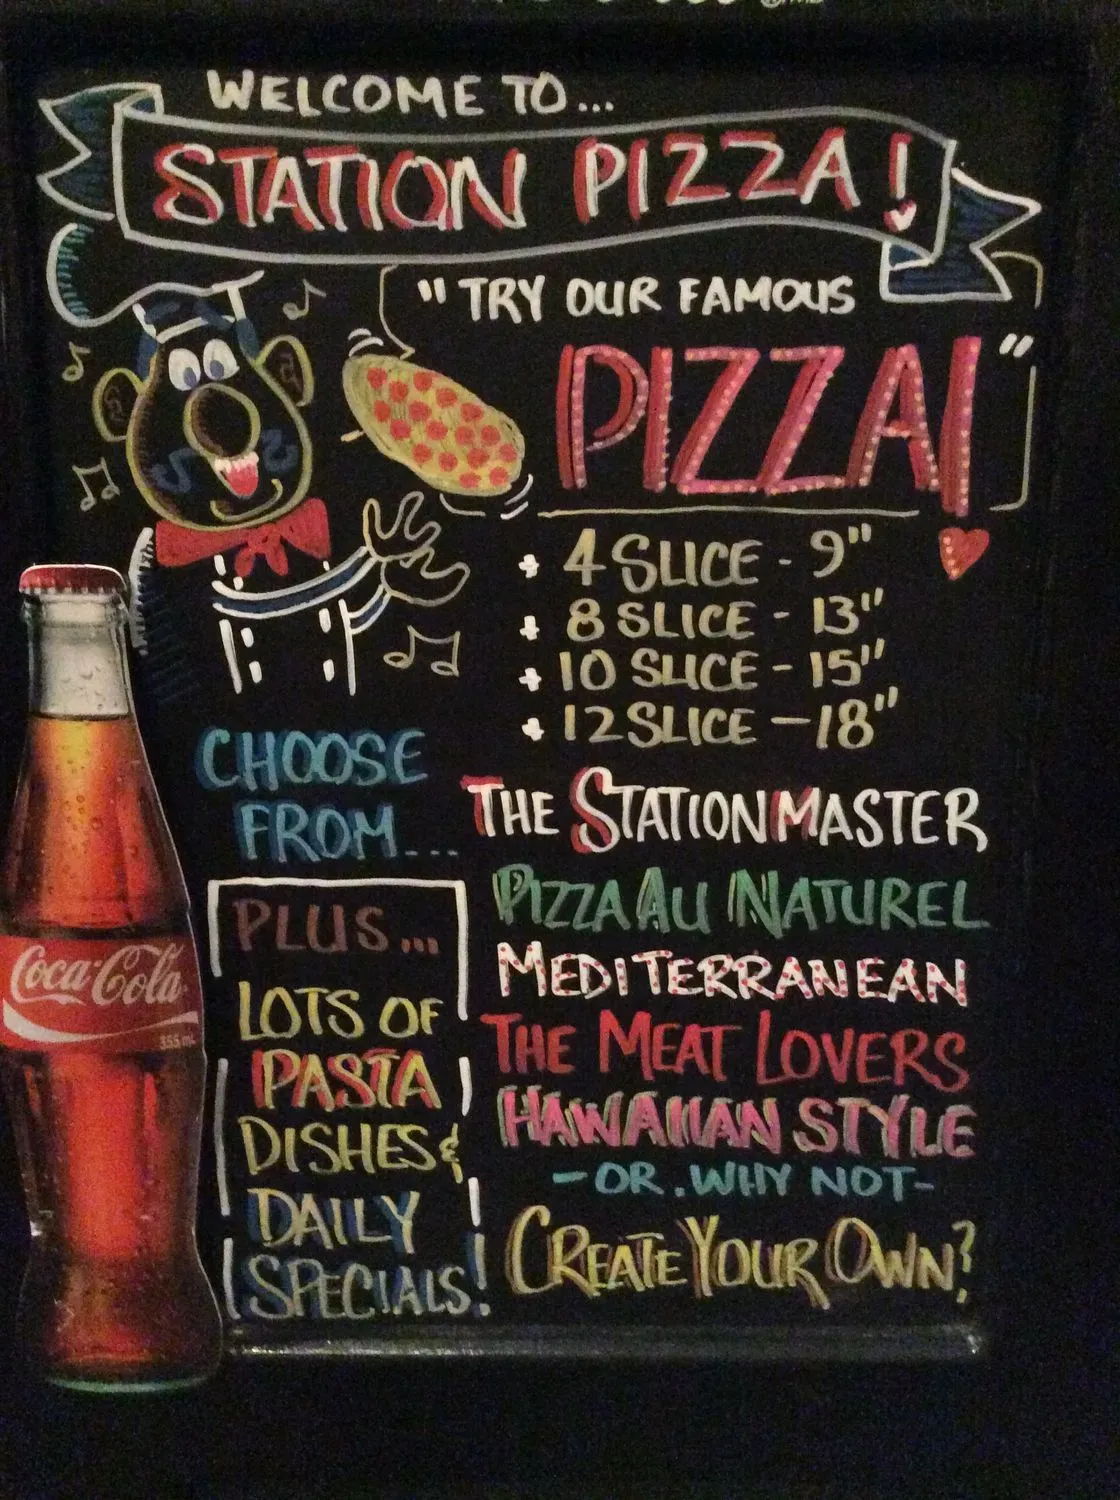 WELCOME TO...
STATION PIZZA!
"TRY OUR FAMOUS
PIZZA!"
+ 4 SLICE - 9"
+ 8 SLICE - 13"
+ 10 SLICE - 15"
+ 12 SLICE - 18"
CHOOSE
FROM...
THE STATION MASTER
PIZZA AU NATUREL
MEDITERRANEAN
THE MEAT LOVERS
HAWAIIAN STYLE
- OR. WHY NOT -
CREATE YOUR OWN?
PLUS...
LOTS OF
PASTA
DISHES &
DAILY
SPECIALS!
Coca-Cola
355 mL